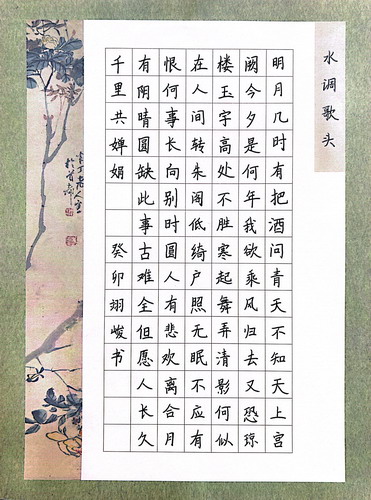 水调歌头
明月几时有把酒问青天不知天上宫
阙今夕是何年我欲乘风归去又恐琼
楼玉宇高处不胜寒起舞弄清影何似
在人间转朱阁低绮户照无眠不应有
恨何事长向别时圆人有悲欢离合月
有阴晴圆缺此事古难全但愿人长久
千里共婵娟 癸卯翊峻书